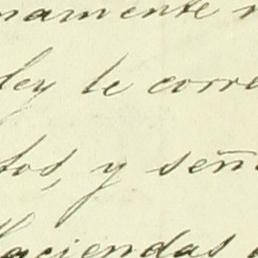 namente
ley le corre
tos, y seña
Haciendas